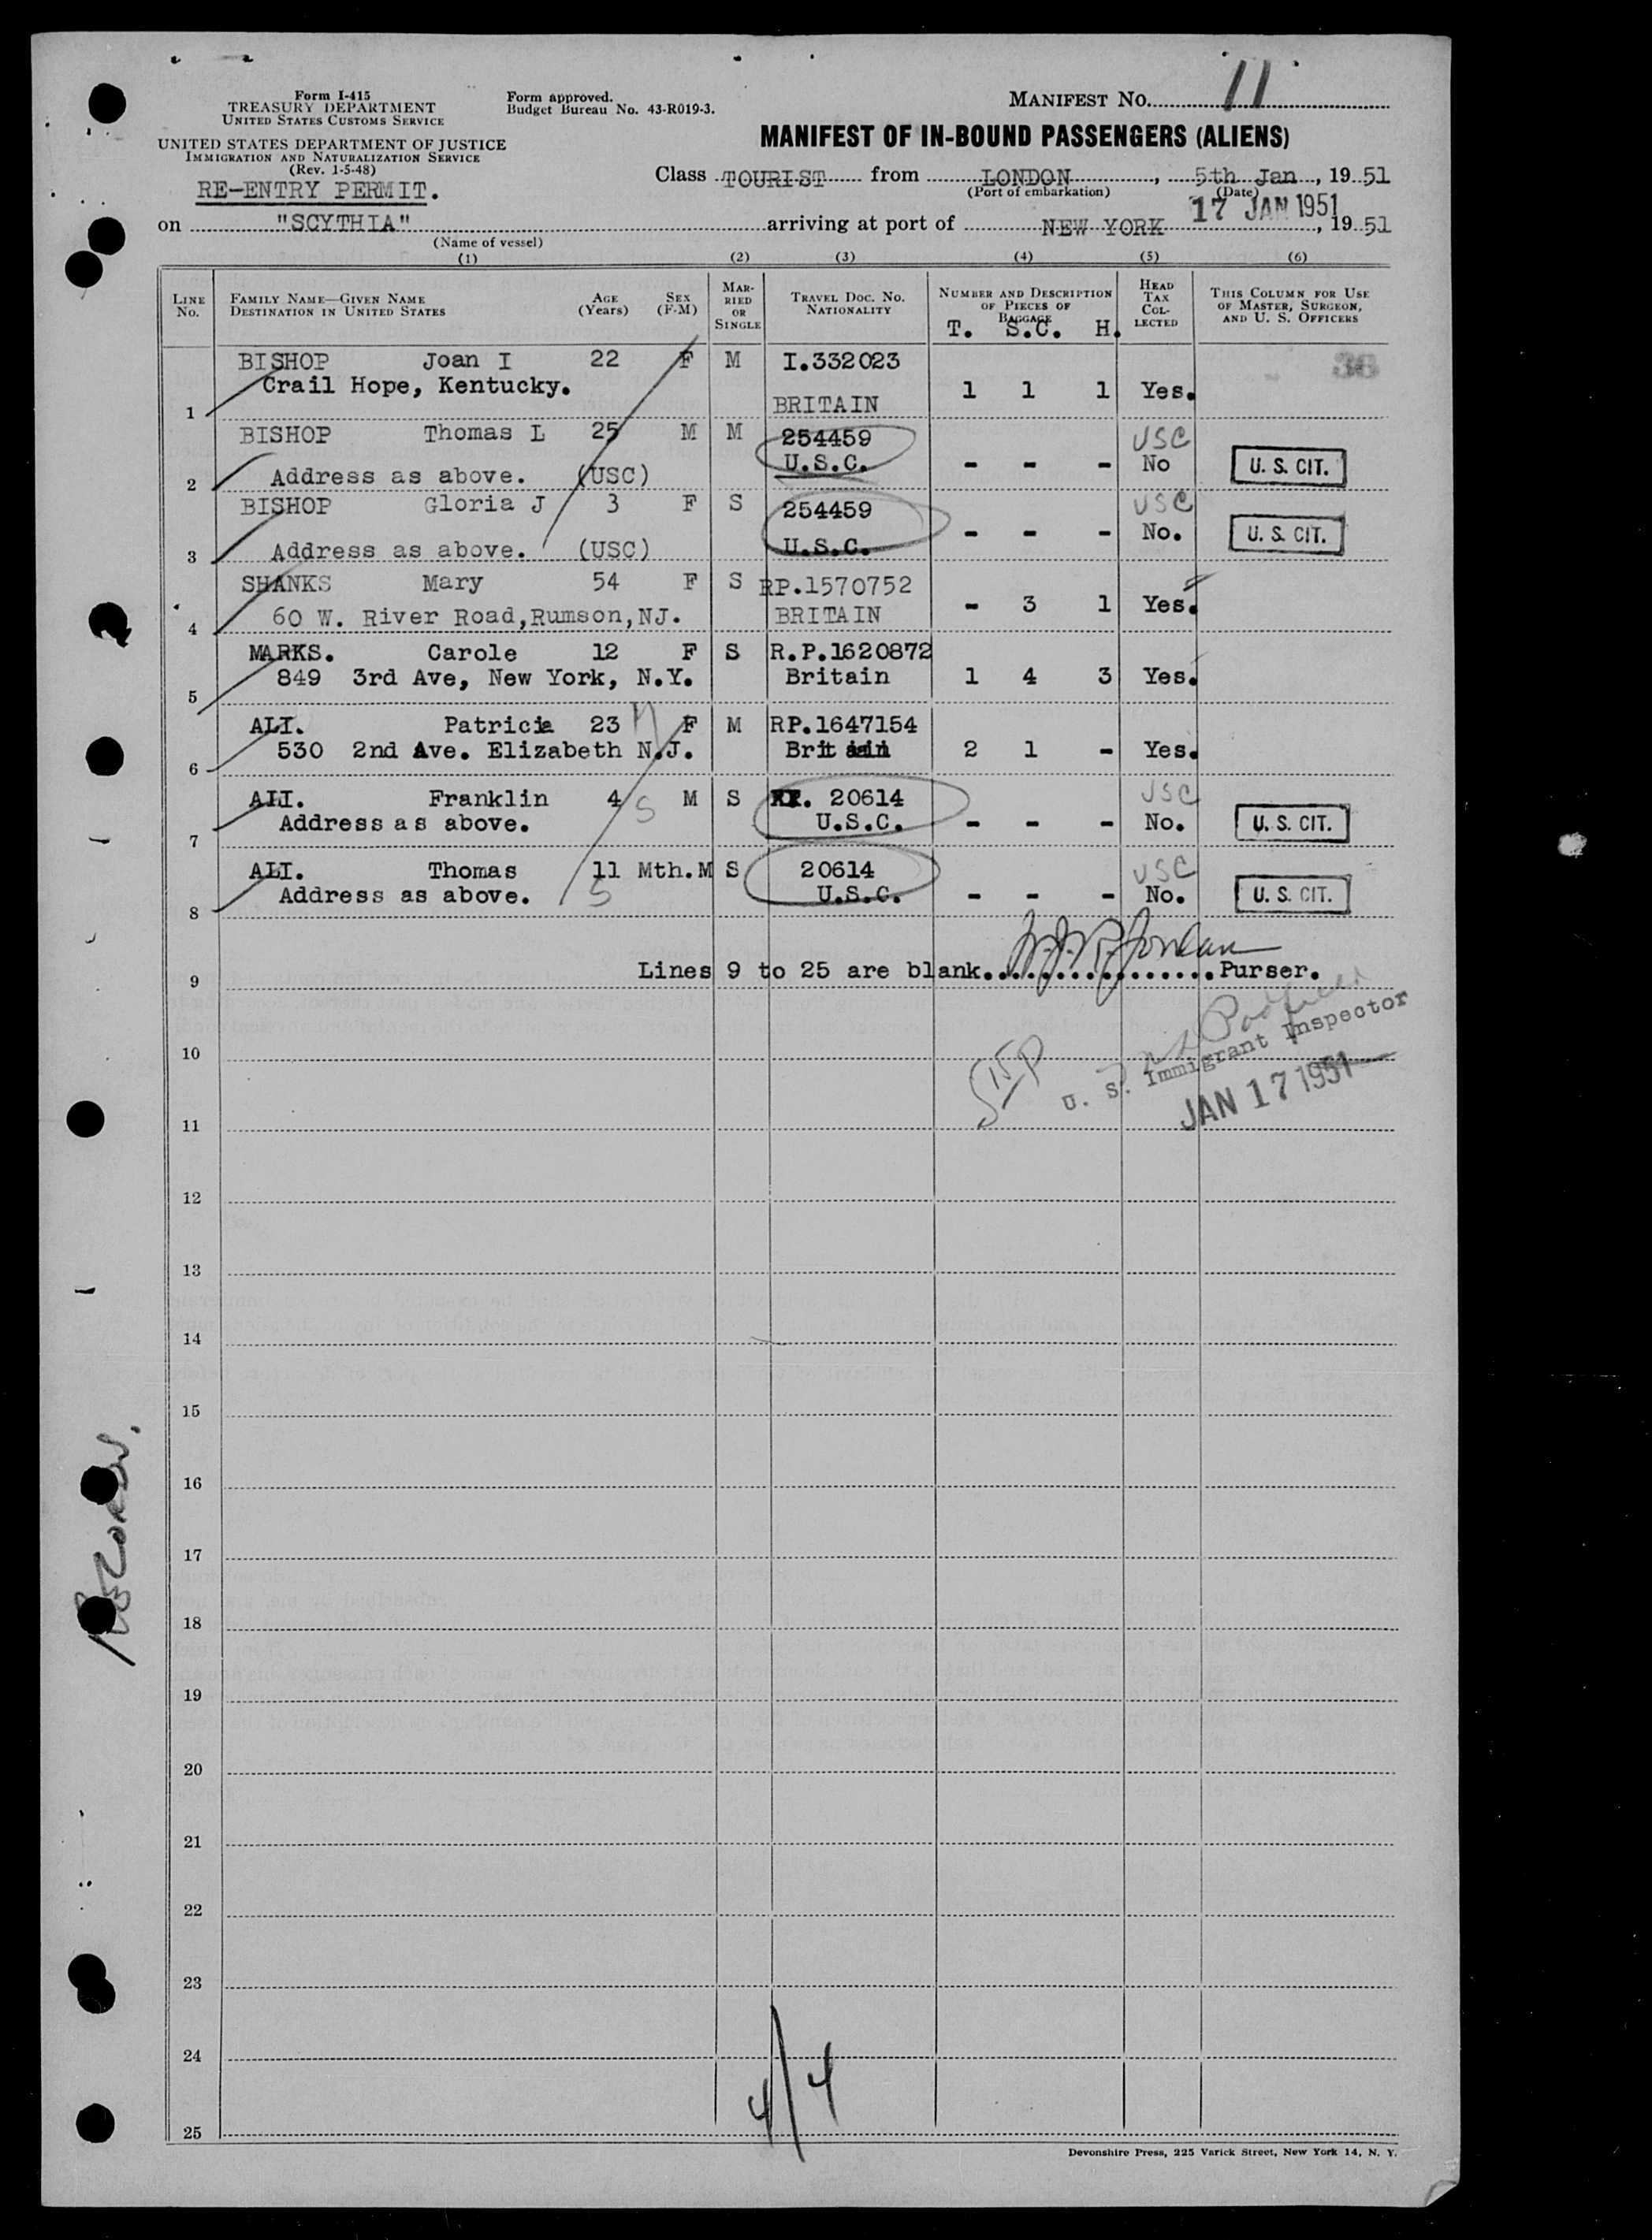 Form I-415
TREASURY DEPARTMENT
UNITED STATES CUSTOMS SERVICE
Form approved.
Budget Bureau No. 43-R019-3.
MANIFEST No. 11
UNITED STATES DEPARTMENT OF JUSTICE
IMMIGRATION AND NATURALIZATION SERVICE
(Rev. 1-5-48)
RE-ENTRY PERMIT.
MANIFEST OF IN-BOUND PASSENGERS (ALIENS)
Class TOURIST from LONDON, 5th Jan, 19 51
(Port of embarkation) (Date)
17 JAN 1951
on "SCYTHIA" arriving at port of NEW YORK, 19 51
(Name of vessel)
(1) (2) (3) (4) (5) (6)
LINE No. FAMILY NAME—GIVEN NAME DESTINATION IN UNITED STATES AGE (Years) SEX (F-M) MARRIED OR SINGLE TRAVEL DOC. No. NATIONALITY NUMBER AND DESCRIPTION OF PIECES OF BAGGAGE T. S.C. H. HEAD TAX COLLECTED THIS COLUMN FOR USE OF MASTER, SURGEON, AND U. S. OFFICERS
BISHOP Joan I 22 F M I.332023 36
1 Crail Hope, Kentucky. BRITAIN 1 1 1 Yes.
BISHOP Thomas L 25 M M 254459 USC
2 Address as above. (USC) U.S.C. - - - No U. S. CIT.
BISHOP Gloria J 3 F S 254459 USC
3 Address as above. (USC) U.S.C. - - - No. U. S. CIT.
SHANKS Mary 54 F S RP.1570752
4 60 W. River Road,Rumson,NJ. BRITAIN - 3 1 Yes.
MARKS. Carole 12 F S R.P.1620872
5 849 3rd Ave, New York, N.Y. Britain 1 4 3 Yes.
ALI. Patricia 23 M F M RP.1647154
6 530 2nd Ave. Elizabeth N.J. Britain 2 1 - Yes.
ALI. Franklin 4 S M S 20614 USC
7 Address as above. U.S.C. - - - No. U. S. CIT.
ALI. Thomas 11 Mth. M S 20614 USC
8 Address as above. S U.S.C. - - - No. U. S. CIT.
9 Lines 9 to 25 are blank.................Purser.
U. S. Immigrant Inspector
10
JAN 17 1951
11
12
13
14
15
16
17
18
19
20
21
22
23
24
4/4
25
Devonshire Press, 225 Varick Street, New York 14, N. Y.